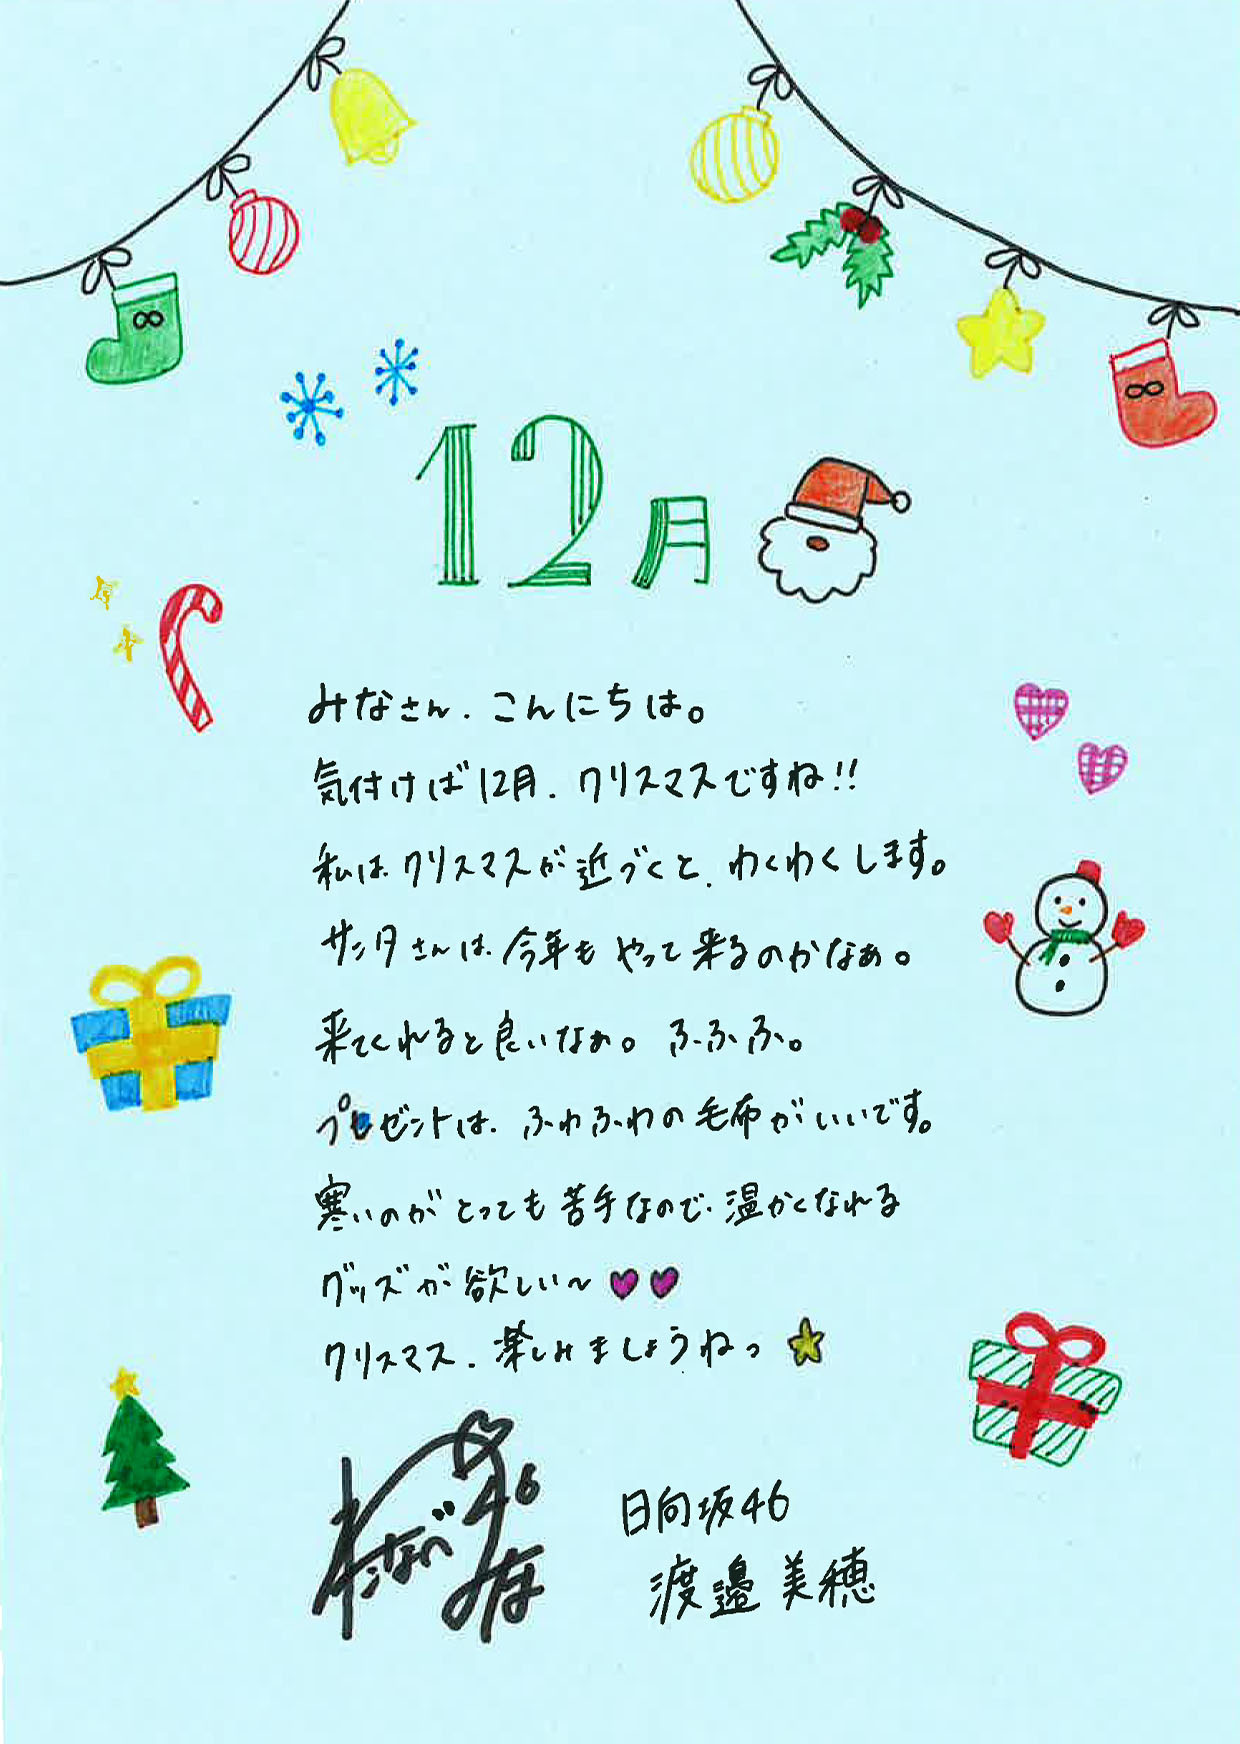 12月
みなさん、こんにちは。
気付けば12月、クリスマスですね!!
私はクリスマスが近づくと、わくわくします。
サンタさんは、今年もやって来るのかなぁ。
来てくれると良いなぁ。ふふふ。
プレゼントは、ふわふわの毛布がいいです。
寒いのがとっても苦手なので、温かくなれる
グッズが欲しい〜
クリスマス、楽しみましょうねっ
わたなべ みほ
46
日向坂46
渡邉美穂